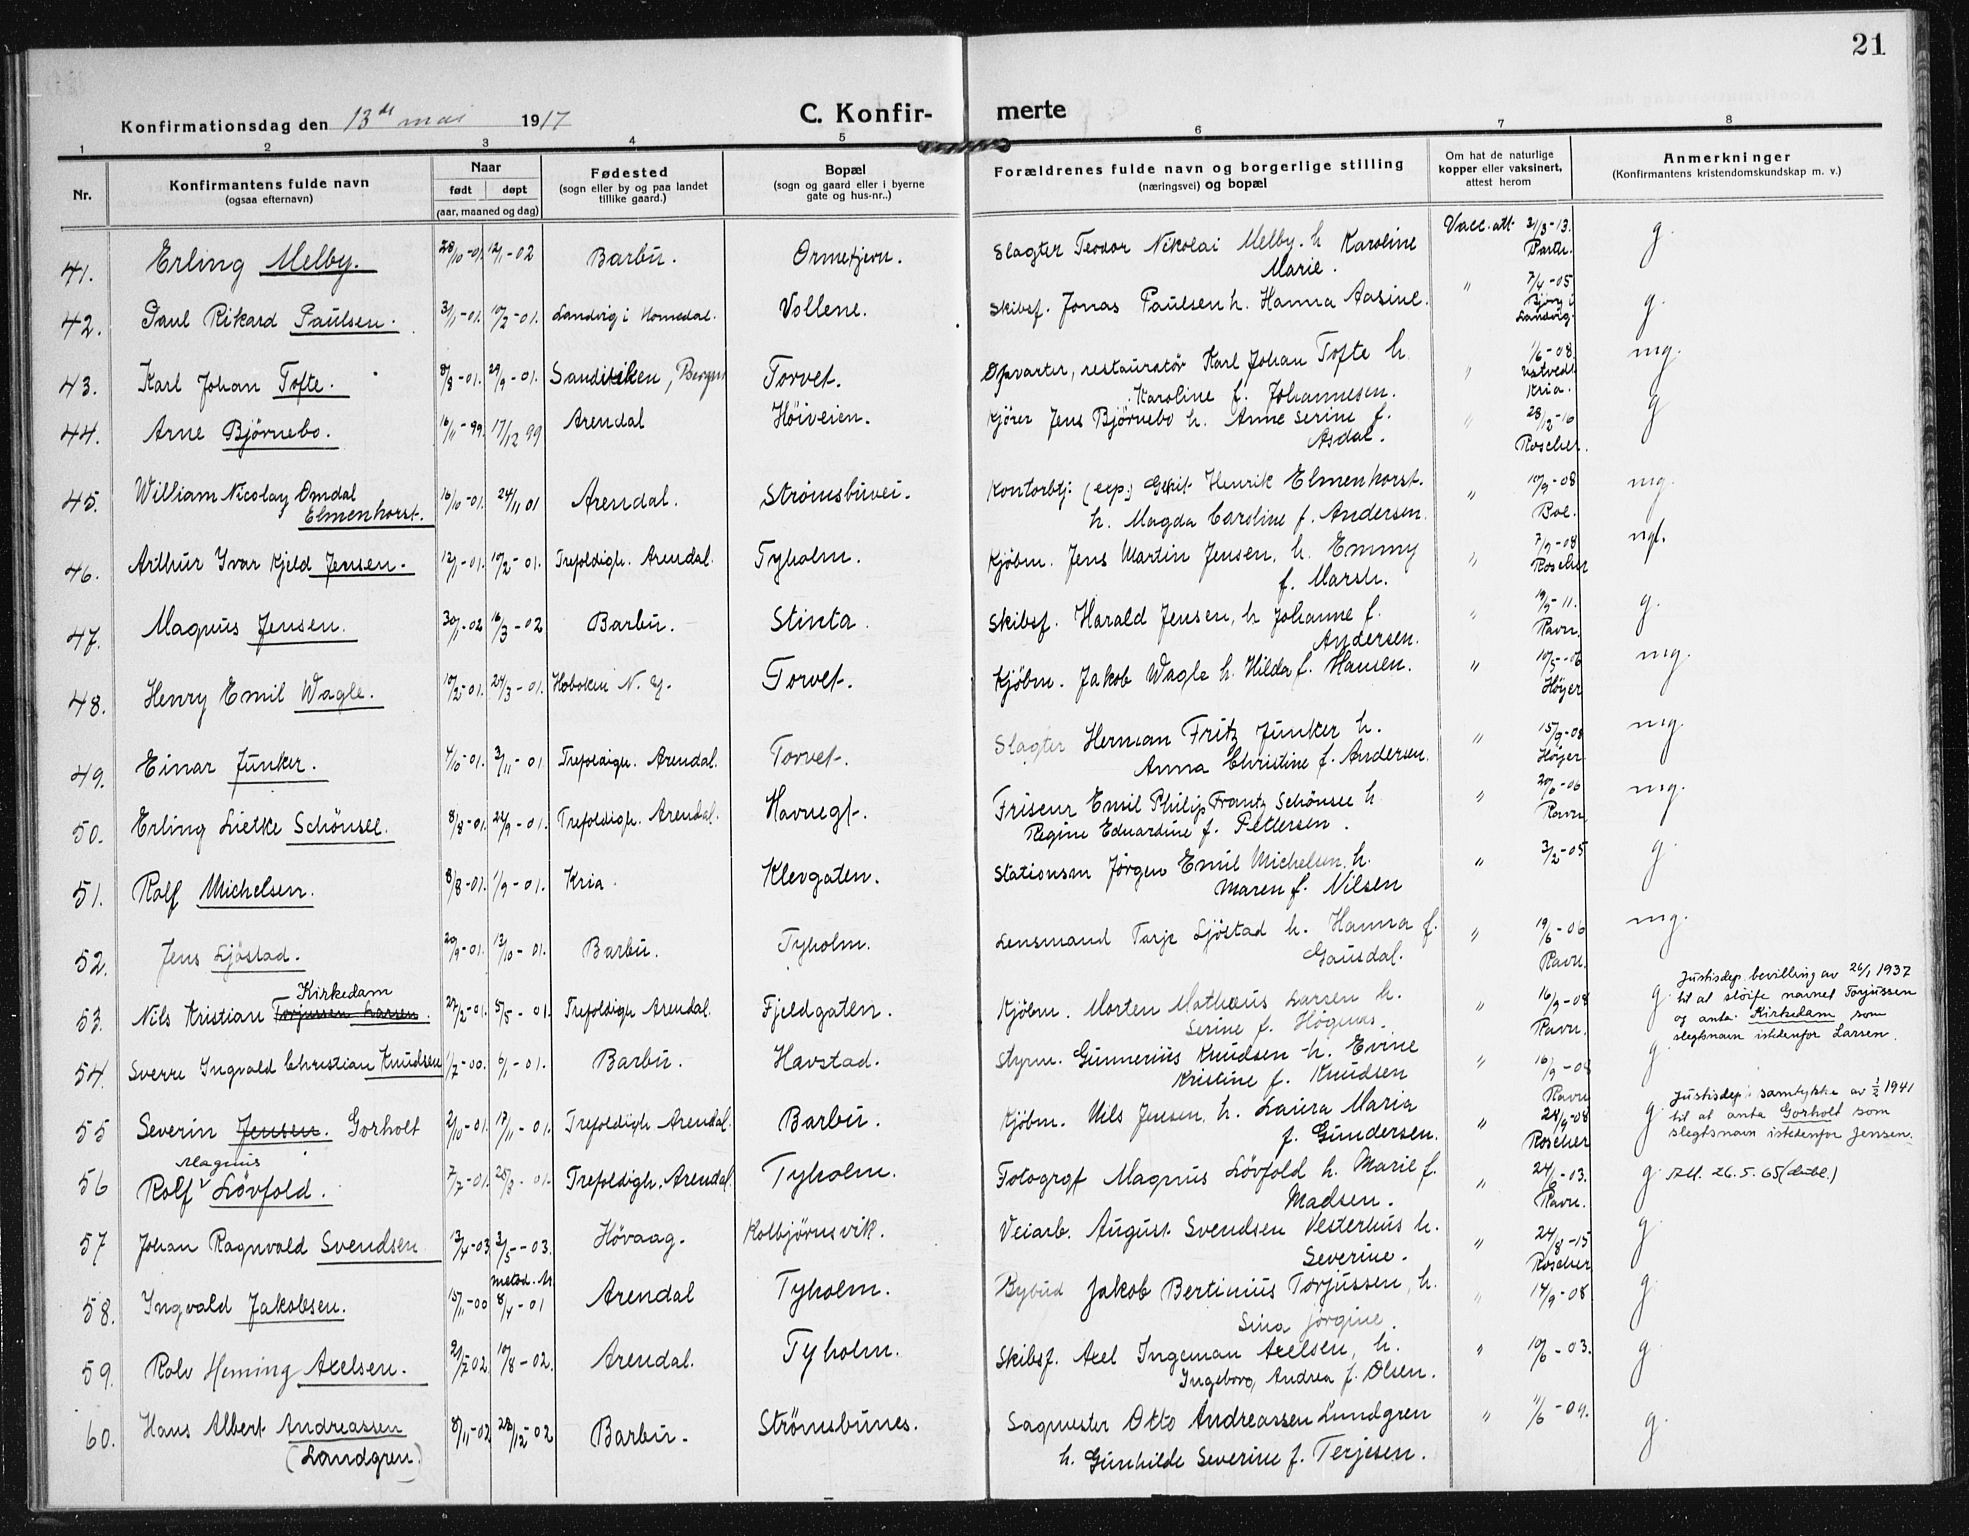 21
Konfirmationsdag den 13de mai 1917
C. Konfir-merte
1 2 3 4 5 6 7 8
Nr.
Konfirmantens fulde navn
(ogsaa efternavn)
Naar
født døpt
(aar, maaned og dag)
Fødested
(sogn eller by og paa landet
tillike gaard.)
Bopæl
(sogn og gaard eller i byerne
gate og hus-nr..)
Forældrenes fulde navn og borgerlige stilling
(næringsvei) og bopæl
Om hat de naturlige
kopper eller vaksinert,
attest herom
Anmerkninger
(Konfirmantens kristendomskundskap m. v.)
41. Erling Melby. 28/10-01. 12/1-02 Barbu. Ormetjern. Slagter Teodor Nikolai Melby. h Karoline Vacc. att. 21/3-13. g.
Marie.
42. Paul Rikard Paulsen. 31/1-01. 10/2-01. Landvig i Homedal. Vollene. Skibsf. Jonas Paulsen h. Hanna Aasine. " 7/4-05 g.
Landvig.
43. Karl Johan Tofte. 8/8-01. 29/9-01. Sandviken, Bergen Torvet. Opvarter, restauratør Karl Johan Tofte h. " 1/6-08 mg.
Karoline f. Johannesen. Kria.
44. Arne Bjørnebo. 16/11-99. 17/12 99 Arendal Høiveien. Kjører Jens Bjørnebo h. Anne Serine f. " 28/12-16 g
Asdal. Roscher.
45. William Nicolay Omdal 16/10-01. 24/11 01 Arendal. Strømsbuvei. Kontorbtj. (exp.) Gerit Henrik Elmenhorst. " 10/9-08 mg.
Elmenhorst. h. Magda Caroline f. Andersen. Boe.
46. Arthur Ivar Kjeld Jensen. 12/1-01. 10/2-01. Trefoldigh. Arendal. Tyholm. Kjøbm. Jens Martin Jensen, h. Emmy " 7/9-08 mg.
f. Marstr. Roscher
47. Magnus Jensen. 30/1-02 16/3-02 Barbu. Stinta. Skibsf. Harald Jensen, h Johanne f. " 19/9-11. g.
Andersen. Ravn.
48. Henry Emil Wagle. 10/2-01. 24/3-01. Hoboken N. Y. Torvet. Kjøbm. Jakob Wagle h. Hilda f. Hansen. " 10/5-06 mg.
Høyer
49. Einar Junker. 4/10-01. 3/11-01. Trefoldigh. Arendal. Torvet. Slagter Herman Fritz Junker h. " 15/9-08 mg.
Anna Christine f. Andersen. Høyer.
50. Erling Lietke Schönsee. 8/8-01. 22/9-01. Trefoldigh. Arendal. Havnegt. Friseur Emil Philip Frantz Schönsee h. " 20/6-06 mg.
Regine Eduardine f. Pettersen. Ravn.
51. Rolf Michelsen. 8/8-01. 1/9-01. Kria. Klevgaten. Stationsm Jørgen Emil Michelsen h. " 3/2-05 g.
Maren f. Nilsen
52. Jens Ljøstad. 20/9-01. 13/10-01. Barbu. Tyholm. Lensmand Tarje Ljøstad h. Hanna f. " 19/6-06 mg.
Gausdal. Ravn.
Kirkedam
53. Nils Kristian Torjussen Larsen. 27/2-01. 5/5-01. Trefoldigh Arendal. Fjeldgaten. Kjøbm. Morten Mathæus Larsen h. " 16/9-08 g
Serine f. Høgnas. Ravn.
Justisdep. bevilling av 26/1 1937
til at sløife navnet Torjussen
og anta Kirkedam som
slegtsnavn istedenfor Larsen.
54. Sverre Ingvald Christian Knudsen 1/7-00. 6/1-01. Barbu. Havstad. Styrm. Gunnerius Knudsen h. Evine " 16/9-08 g.
Kristine f. Knudsen Ravn
55 Severin Jensen. Gorholt 2/10-01. 17/11-01. Trefoldigh Arendal. Barbu. Kjøbm. Nils Jensen, h. Laura Maria " 28/9-08 g
f. Gundersen. Roscher
Justisdep. samtykke av 1/2 1941
til at anta Gorholt som
slegtsnavn istedenfor Jensen.
Magnus
56 Rolf Løvfold. 7/7-01. 25/8-01. Trefoldigh. Arendal. Tyholm. Fotogrgf Magnus Løvfold h. Marie f. " 24/6-03. g Att. 26.5.65 (dubl.)
Madsen. Ravn.
57 Johan Ragnvald Svendsen. 13/4-03 3/5-03. Høvaag. Kolbjørnsvik. Veiarb. August Svendsen Vesterhus h. " 24/8-15 g
Severine. Roscher
metod. M
58. Ingvald Jakobsen. 15/11-00 8/4-01 Arendal Tyholm. Bybud Jakob Bertinius Torjussen, h. " 14/9-08 g.
Sina Jørgine.
59. Rolv Heming Axelsen. 2/2 02. 10/8-02. Arendal. Tyholm. Skibsf. Axel Ingeman Axelsen, h. " 10/6-03. g
Ingeborg Andrea f. Olsen.
60. Hans Albert Andreassen 8/11-02 28/12-02 Barbu. Strømsbunes. Sagmester Otto Andreassen Lundgren " 11/6-09. g.
(Landgren.) h. Gunhilde Severine f. Terjesen.